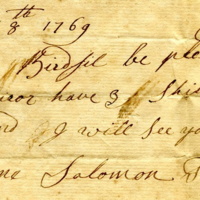 8th 1769
Birdsil be ple
have 3 Shil
I will see yo
me Solomon